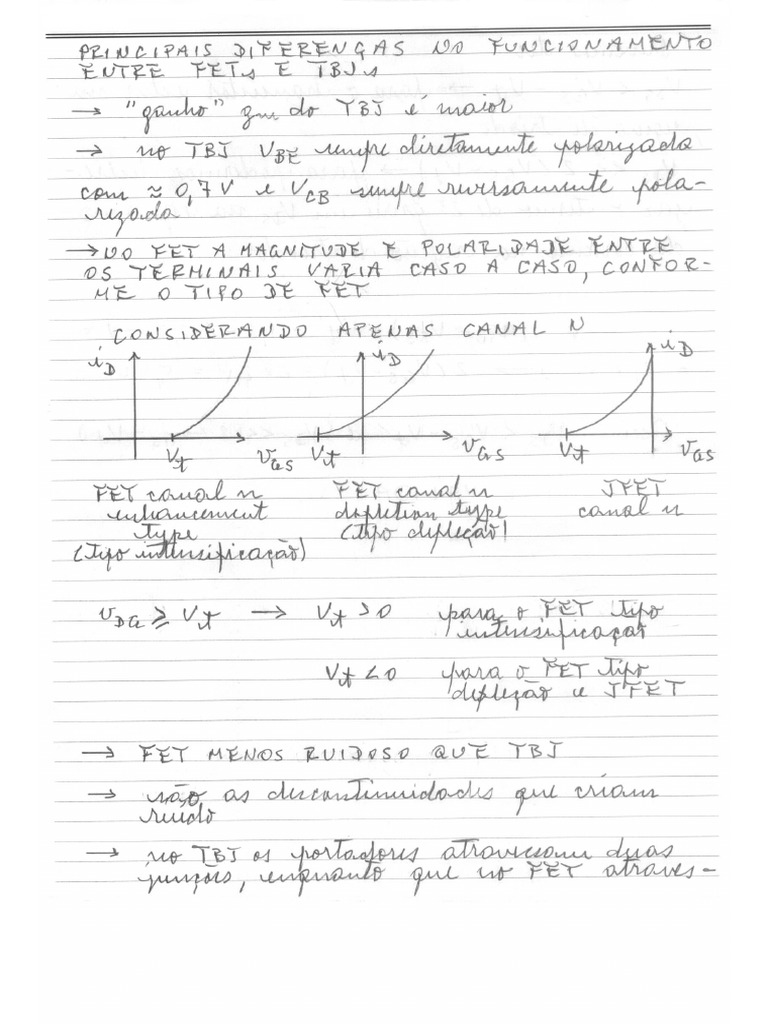 PRINCIPAIS DIFERENÇAS NO FUNCIONAMENTO
ENTRE FETs E TBJs
→ "ganho" gm do TBJ é maior
→ no TBJ VBE sempre diretamente polarizada
com ≈ 0,7V e VCB sempre reversamente pola-
rizada
→ NO FET A MAGNITUDE E POLARIDADE ENTRE
OS TERMINAIS VARIA CASO A CASO, CONFOR-
ME O TIPO DE FET
CONSIDERANDO APENAS CANAL N
iD iD iD
Vt vGS Vt vGS Vt vGS
FET canal n FET canal n JFET
enhancement depletion type canal n
type (tipo depleção)
(tipo intensificação)
vDG ≥ Vt → Vt > 0 para o FET tipo
intensificaçao
Vt < 0 para o FET tipo
depleção e JFET
→ FET MENOS RUIDOSO QUE TBJ
→ são as descontinuidades que criam
ruído
→ no TBJ os portadores atravessam duas
junções, enquanto que no FET atraves-